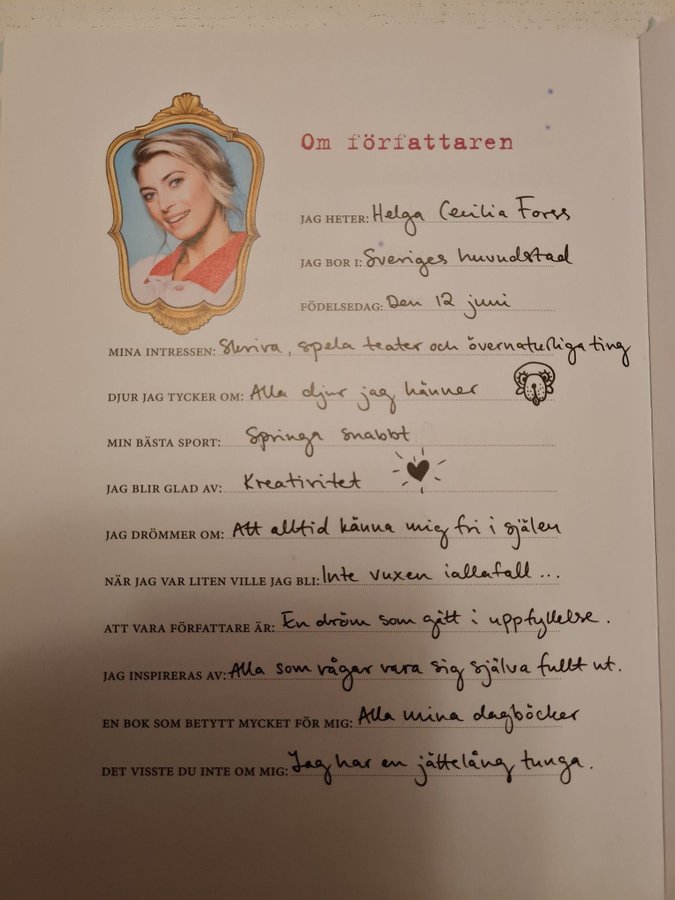 Om författaren
JAG HETER: Helga Cecilia Forss
JAG BOR I: Sveriges huvudstad
FÖDELSEDAG: Den 12 juni
MINA INTRESSEN: Skriva, spela teater och övernaturliga ting
DJUR JAG TYCKER OM: Alla djur jag känner
MIN BÄSTA SPORT: Springa snabbt
JAG BLIR GLAD AV: Kreativitet
JAG DRÖMMER OM: Att alltid känna mig fri i själen
NÄR JAG VAR LITEN VILLE JAG BLI: Inte vuxen iallafall ...
ATT VARA FÖRFATTARE ÄR: En dröm som gått i uppfyllelse.
JAG INSPIRERAS AV: Alla som vågar vara sig själva fullt ut.
EN BOK SOM BETYTT MYCKET FÖR MIG: Alla mina dagböcker
DET VISSTE DU INTE OM MIG: Jag har en jättelång tunga.